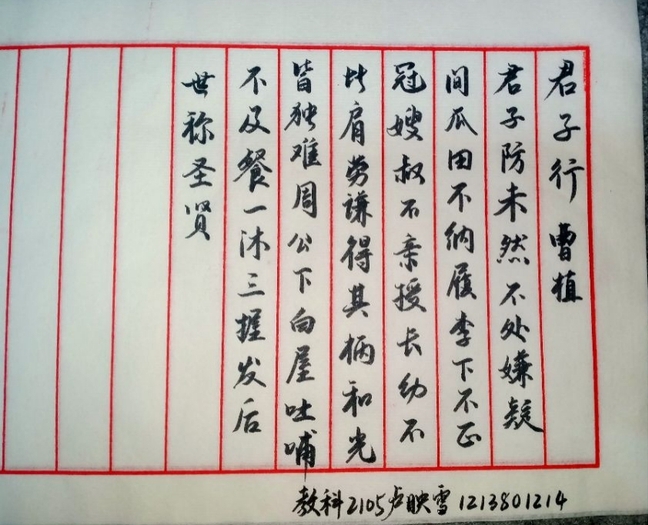 君子行 曹植
君子防未然不处嫌疑
间瓜田不纳履李下不正
冠嫂叔不亲授长幼不
比肩劳谦得其柄和光
皆独难周公下白屋吐哺
不及餐一沐三握发后
世称圣贤
教科2105卢映雪1213801214